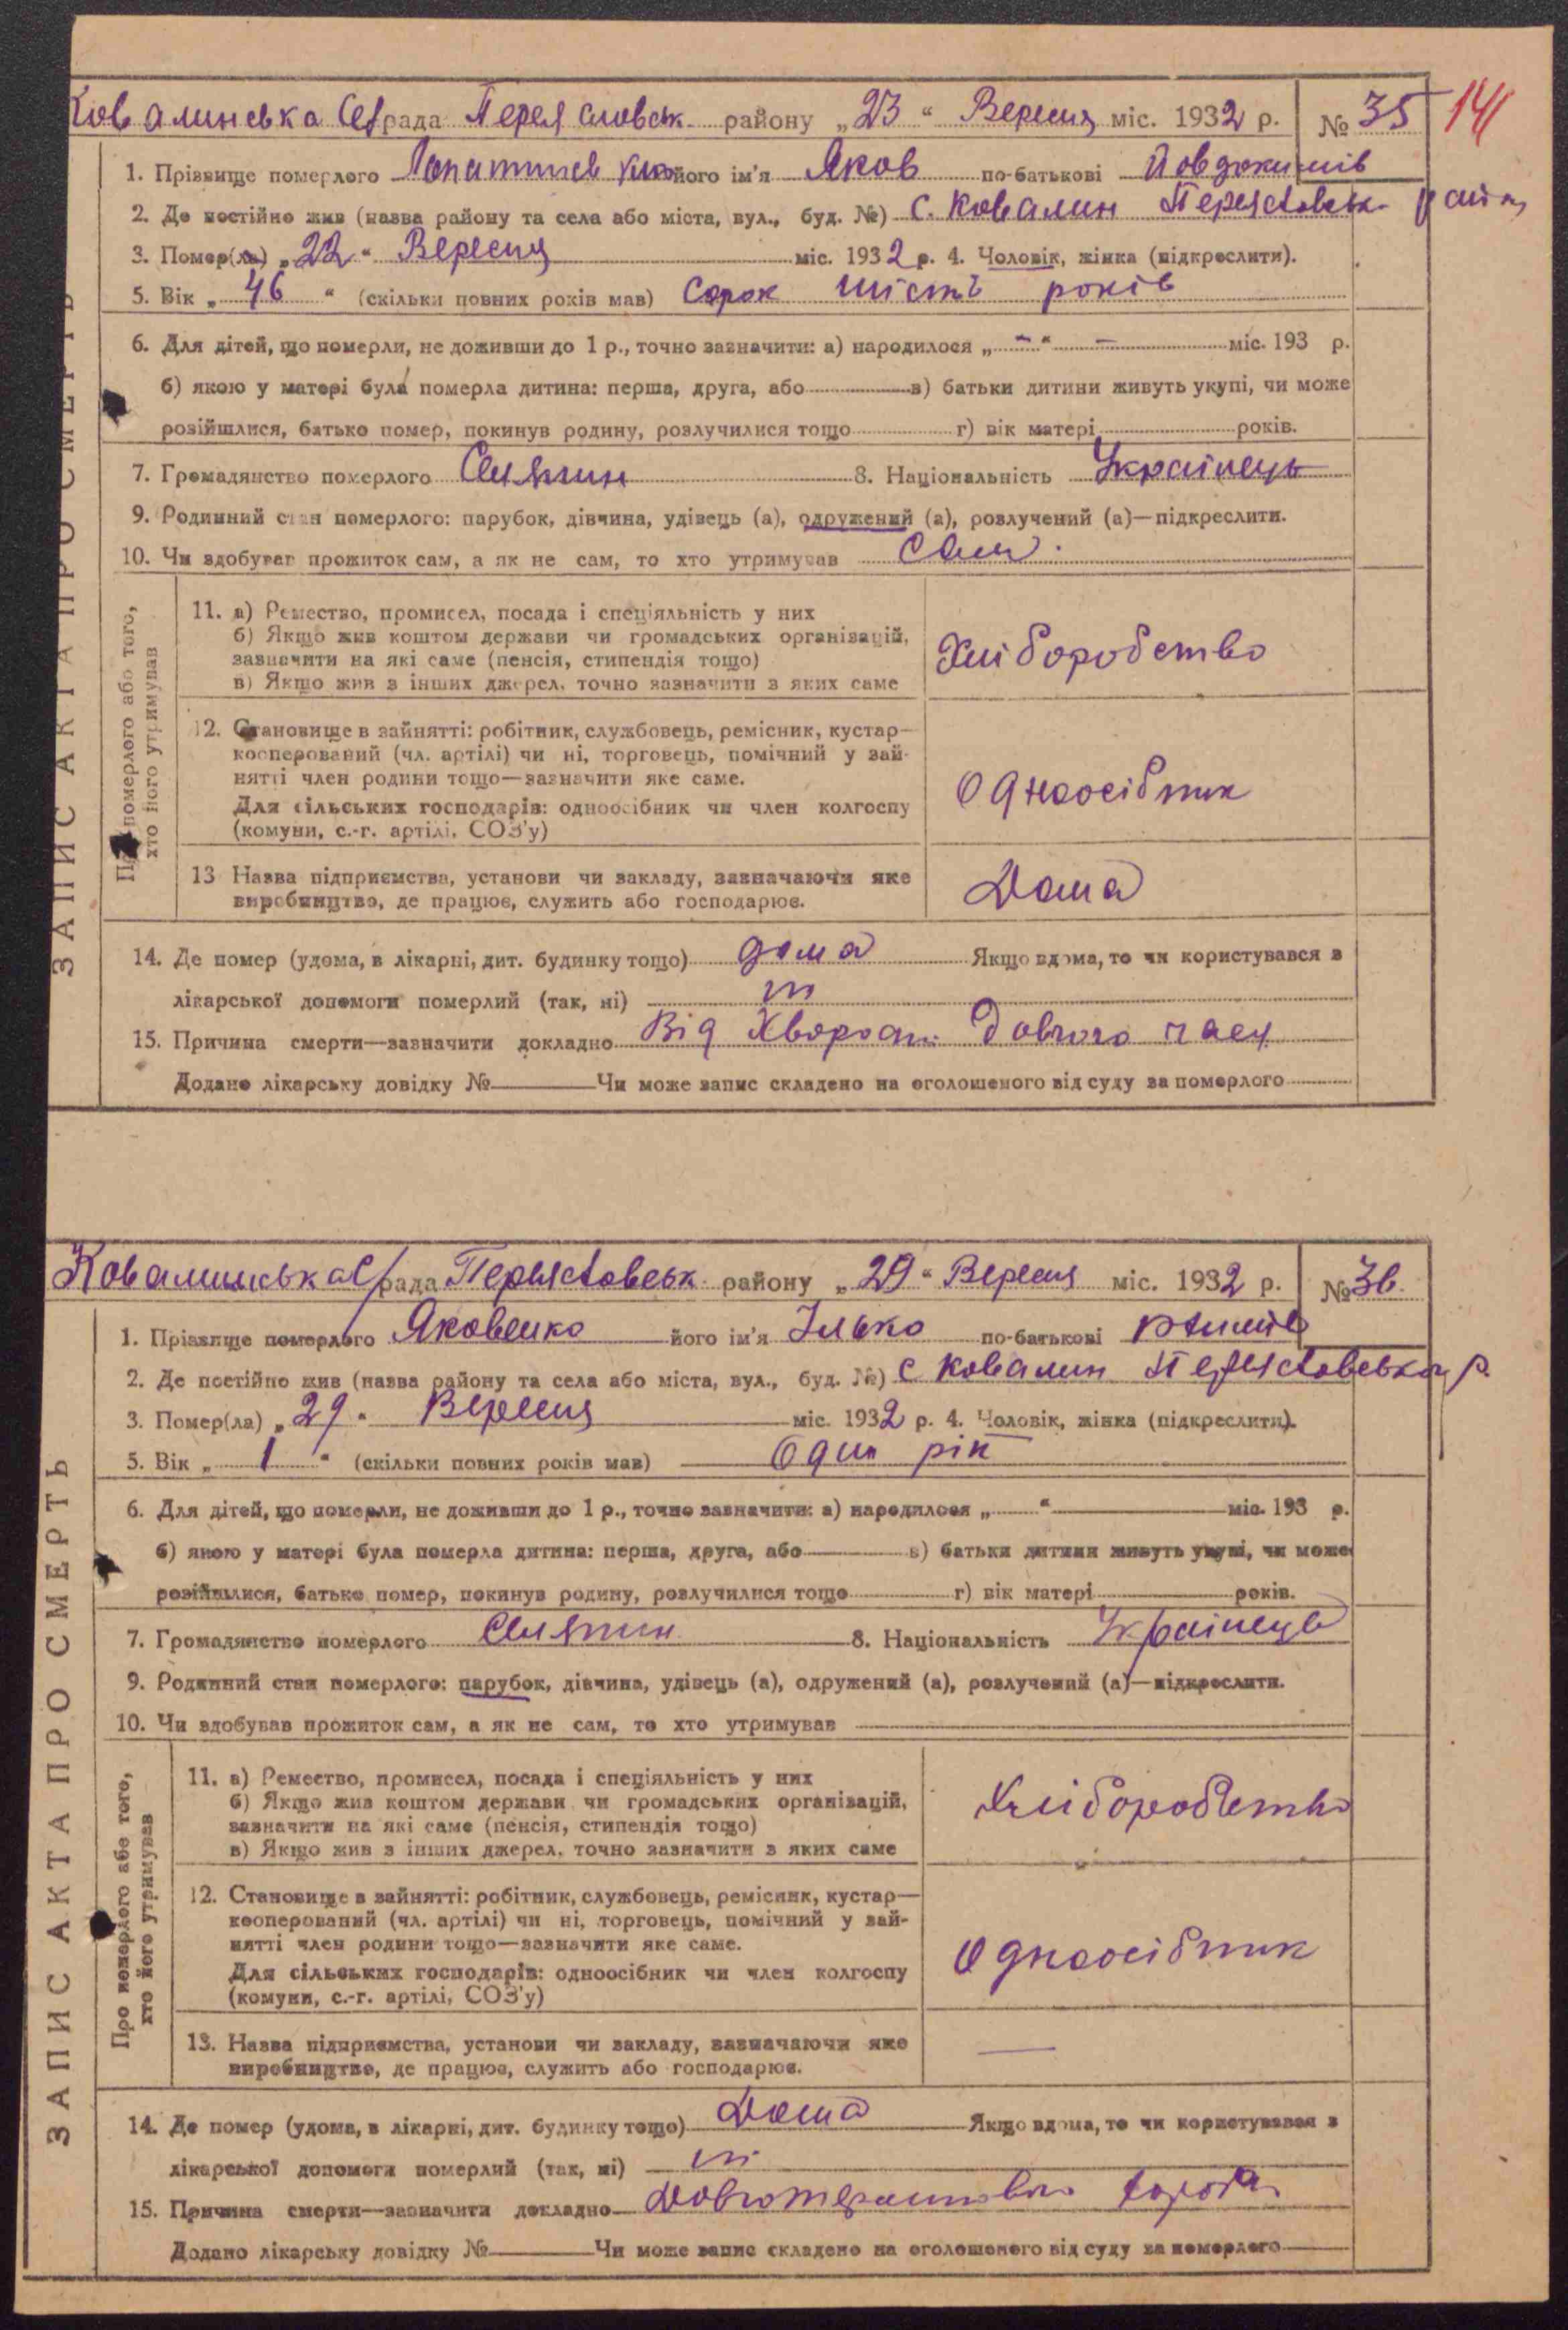 Ковалинська С/рада Переяславськ району „23" Вересня міс. 1932 р. № 35 141
1. Прізвище померлого його ім'я Яков по-батькові Йовдокимів
2. Де постійно жив (назва району та села або міста, вул., буд. №) с. Ковалин Переяславськ.
3. Помер(ла) „22" Вересня міс. 1932 р. 4. Чоловік, жінка (підкреслити).
5. Вік „46" (скільки повних років мав) Сорок шість років
6. Для дітей, що померли, не доживши до 1 р., точно зазначити: а) народилося „-" — міс. 193 р.
б) якою у матері була померла дитина: перша, друга, або в) батьки дитини живуть укупі, чи може
розійшлися, батько помер, покинув родину, розлучилися тощо г) вік матері років.
7. Громадянство померлого Селянин 8. Національність Українець
9. Родинний стан померлого: парубок, дівчина, удівець (а), одружений (а), розлучений (а)—підкреслити.
10. Чи здобував прожиток сам, а як не сам, то хто утримував Сам.
ЗАПИС АКТА ПРО СМЕРТЬ
Про померлого або того,
хто його утримував
11. а) Ремество, промисел, посада і спеціяльність у них
б) Якщо жив коштом держави чи громадських організацій,
зазначити на які саме (пенсія, стипендія тощо)
в) Якщо жив з інших джерел, точно зазначити з яких саме
Хліборобство
12. Становище в зайнятті: робітник, службовець, ремісник, кустар—
кооперований (чл. артілі) чи ні, торговець, помічний у зай-
нятті член родини тощо—зазначити яке саме.
Для сільських господарів: одноосібник чи член колгоспу
(комуни, с.-г. артілі, СОЗ'у)
Одноосібник
13 Назва підприємства, установи чи закладу, зазначаючи яке
виробництво, де працює, служить або господарює.
Дома
14. Де помер (удома, в лікарні, дит. будинку тощо) дома Якщо вдома, то чи користувався з
лікарської допомоги померлий (так, ні) ні
15. Причина смерти—зазначити докладно Від Хворости Довгого часу
Додано лікарську довідку № Чи може запис складено на оголошеного від суду за померлого
Ковалинська С/рада Переяславськ району „29" Вересня міс. 1932 р. № 36.
1. Прізвище померлого Яковенко його ім'я Ілько по-батькові
2. Де постійно жив (назва району та села або міста, вул., буд. №) с Ковалин Переяславського р.
3. Помер(ла) „29" Вересня міс. 1932 р. 4. Чоловік, жінка (підкреслити).
5. Вік „1" (скільки повних років мав) Один рік
6. Для дітей, що померли, не доживши до 1 р., точно зазначити: а) народилося „ " міс. 193 р.
б) якою у матері була померла дитина: перша, друга, або в) батьки дитини живуть укупі, чи може
розійшлися, батько помер, покинув родину, розлучилися тощо г) вік матері років.
7. Громадянство померлого Селянин 8. Національність Українець
9. Родинний стан померлого: парубок, дівчина, удівець (а), одружений (а), розлучений (а)—підкреслити.
10. Чи здобував прожиток сам, а як не сам, то хто утримував
ЗАПИС АКТА ПРО СМЕРТЬ
Про померлого або того,
хто його утримував
11. а) Ремество, промисел, посада і спеціяльність у них
б) Якщо жив коштом держави чи громадських організацій,
зазначити на які саме (пенсія, стипендія тощо)
в) Якщо жив з інших джерел, точно зазначити з яких саме
Хліборобство
12. Становище в зайнятті: робітник, службовець, ремісник, кустар—
кооперований (чл. артілі) чи ні, торговець, помічний у зай-
нятті член родини тощо—зазначити яке саме.
Для сільських господарів: одноосібник чи член колгоспу
(комуни, с.-г. артілі, СОЗ'у)
Одноосібник
13. Назва підприємства, установи чи закладу, зазначаючи яке
виробництво, де працює, служить або господарює.
—
14. Де помер (удома, в лікарні, дит. будинку тощо) Дома Якщо вдома, то чи користувався з
лікарської допомоги померлий (так, ні) ні
15. Причина смерти—зазначити докладно
Додано лікарську довідку № Чи може запис складено на оголошеного від суду за померлого